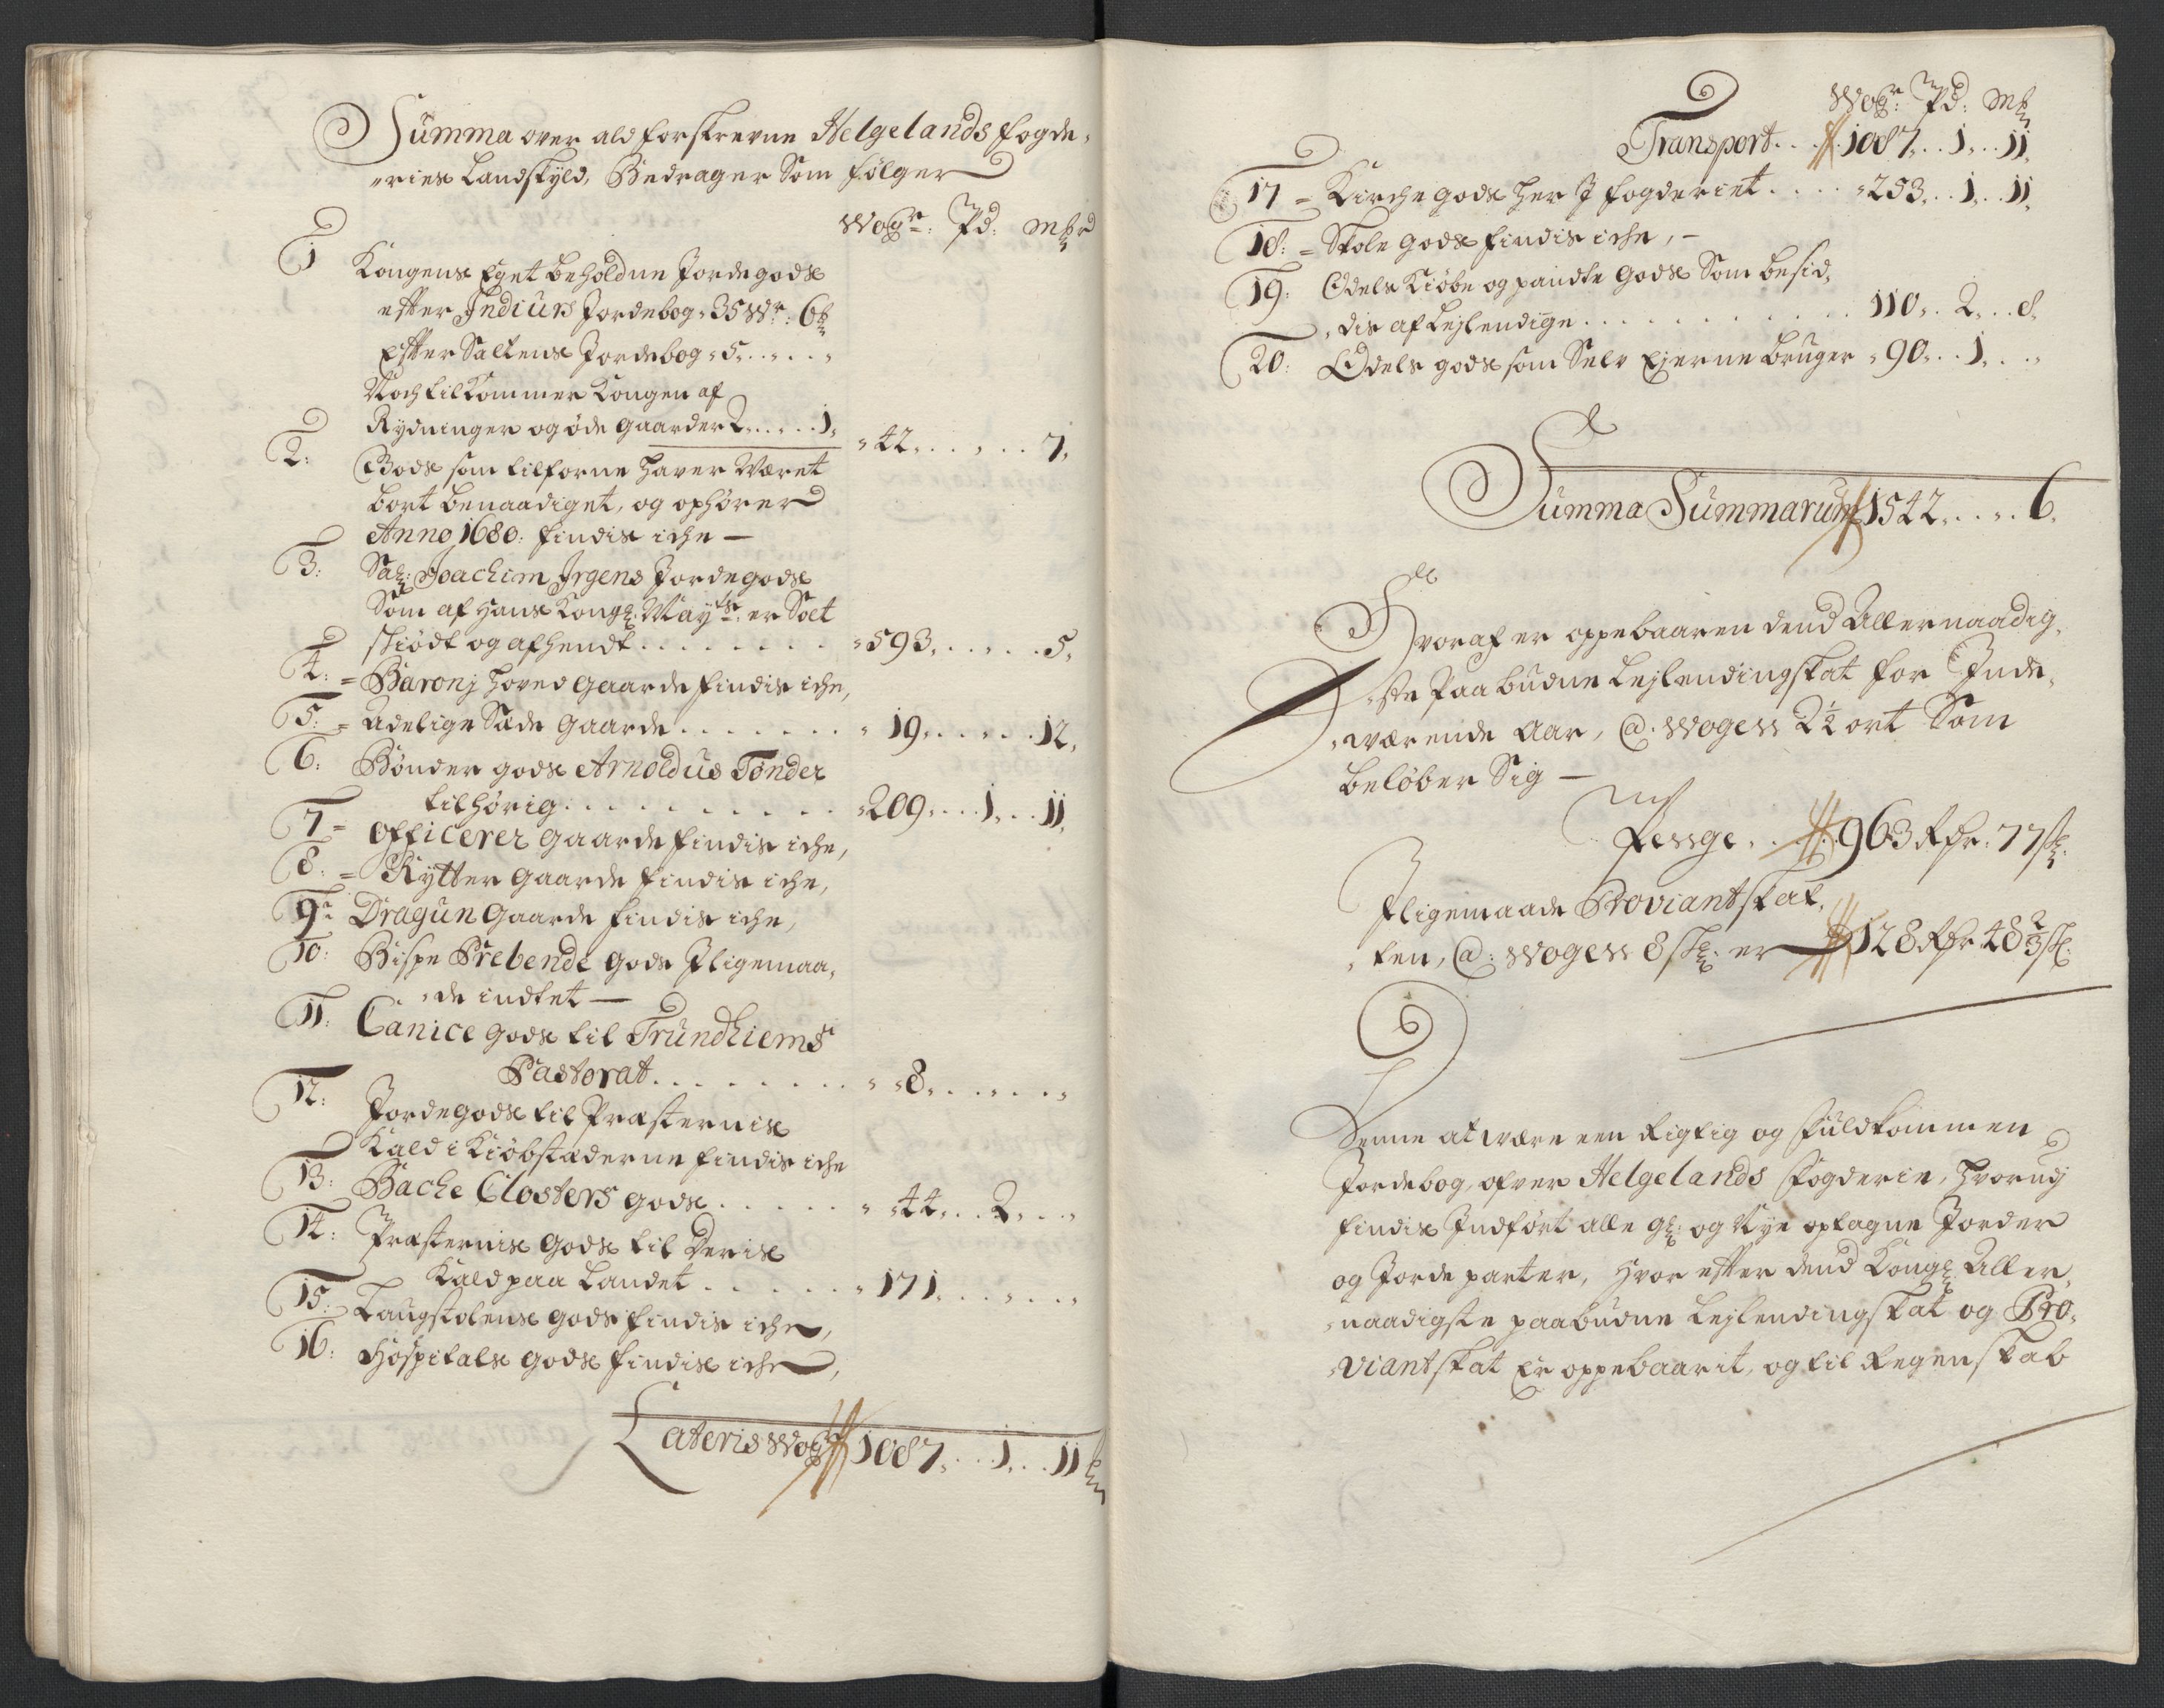 Summa over ald forskrevne Helgelands fogde,
,,ries Landskyld, Bedrager Som følger
Wogr: Pd: Mkr
1 Kongens Eget beholdne Jordegods
efter Indiurs Jordebog, 35 Wr: 6
Efter Saltens Jordebog, 5,
Noch tilkommer Kongen af
Rydninger og øde gaarder 2. 1, 42. 7,
2: Gods som tilforne haver Været
bort benaadiget, og ophører
Anno 1680: findis iche —
3: Sal: Joachim Irgens Jordegods
Som af Hans Kongl: Mayts: er Solt
skiødt og afhendt 593. 5,
4: = Baronj hoved gaarde findis iche,
5: = Adelige Sæde gaarde 19. 12,
6: Bønder gods Arnoldus Tønder
tilhørig 209. 1. 11,
7 = Officerer gaarde findis iche,
8: = Rytter gaarde findis iche,
9: Dragun gaarde findis iche,
10: Bispe Prebende gods Jligemaa,
,,de indtet —
11: Canice gods til Trundhiems
Pastorat 8.
12: Jordegods til Præsternis
Kald i Kiøbstæderne findis iche
13: Bache Closters gods 44. 2.
14: Præsternis gods til Deris
Kald paa Landet 171.
15: Laugstolens gods findis iche,
16: Hospitals gods findis iche,
Lateris Wogr 1087. 1. 11
Wogr: Pd: Mk
Transport 1087. 1. 11,
17 = Kirche gods her J fogderiet 253. 1. 11,
18: = Skole gods findis iche, –
19: Odels Kiøbe og pandte gods Som besid,
,,dis af Lejlendige 110. 2. 8,
20: Odels gods som Selv Ejerne bruger 90. 1.
Summa Summarum 1542. 6.
Hvoraf er oppebaaren dend Allernaadig,
,,ste Paabudne Lejlendingskat for Inde,
,,værende Aar, @. Wogen 2½ ort Som
beløber Sig —
Penge 963 Rdr. 77 sk:
Jligemaade Proviantskat,
,,ten, @: Wogen 8 sk: er 128 Rdr 48 2/3 sk:
Denne at være een Rigtig og fuldkommen
Jordebog, ofver Helgelands fogderie, hvorudj
findis Indført alle gl: og Nye optagne Jorder
og Jorde parter, Hvor efter dend Kongl: Aller,
,,naadigste paabudne Lejlendingskat og Pro,
,,viantskat Er oppebaarit, og til Regenskab